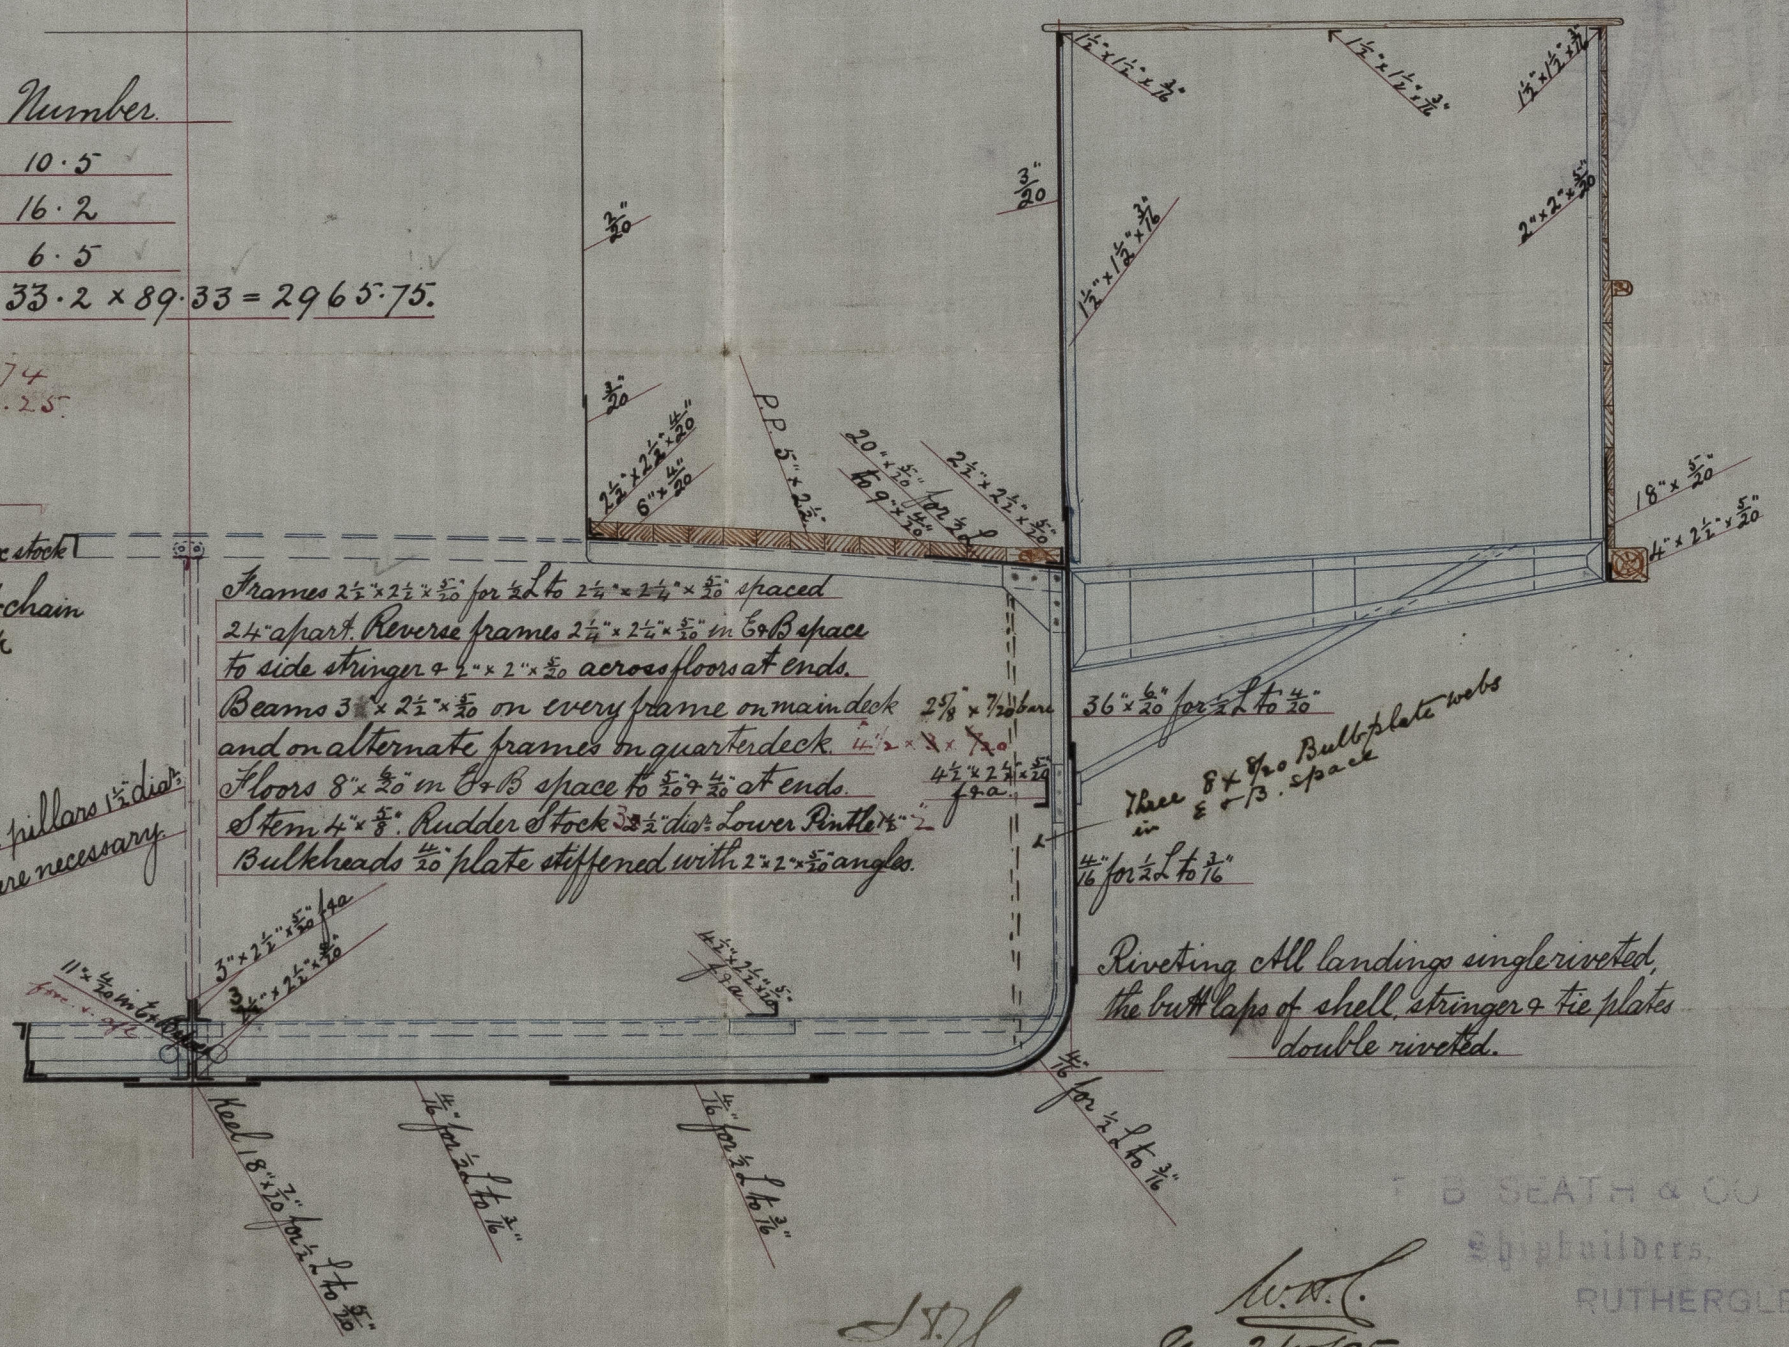 Number.
10.5
16.2
6.5
33.2 × 89.33 = 2965.75.
74
.25.
stock
chain
pillars 1½" diar:
necessary
3/20"
3/20"
2½" × 2½" × 4/20"
6" × 4/20"
P.P. 5" × 2½"
20" × 5/20" for ½ L
to 9" × 4/20"
2½" × 2½" × 5/20"
3/20"
1½" × 1½" × 3/16"
1½" × 1½" × 3/16"
1½" × 1½" × 3/16"
1½" × 1½" × 3/16"
2" × 2" × 5/20"
18" × 5/20"
4" × 2½" × 5/20"
Frames 2½" × 2½" × 5/20" for ½ L to 2¼" × 2¼" × 5/20" spaced
24" apart. Reverse frames 2¼" × 2¼" × 5/20" in E & B space
to side stringer & 2" × 2" × 5/20 across floors at ends.
Beams 3" × 2½" × 5/20 on every frame on main deck
and on alternate frames on quarterdeck.
Floors 8" × 6/20" in E & B space to 5/20" & 4/20" at ends.
Stem 4" × 5/8". Rudder Stock ½" diar: Lower Pintle
Bulkheads 4/20" plate stiffened with 2" × 2" × 5/20" angles.
2 5/8" × 7/20 bare
4½ × 3 × 7/20
4½" × 2½" × 5/20"
f & a.
36" × 6/20" for ½ L to 4/20"
Three 8 × 8/20 Bulb plate webs
in E & B. space
4/16" for ½ L to 3/16"
Riveting All landings single riveted,
the butt laps of shell, stringer & tie plates
double riveted.
3" × 2½" × 5/20" f & a
2½" × 5/20"
11" × 4/20" in
4½" × 2½" × 5/20"
f & a
Keel 18" × 7/20" for ½ L to 5/20"
4/16" for ½ L to 3/16"
4/16" for ½ L to 3/16"
4/16" for ½ L to 3/16"
T. B. SEATH & CO
Shipbuilders.
RUTHERGLE